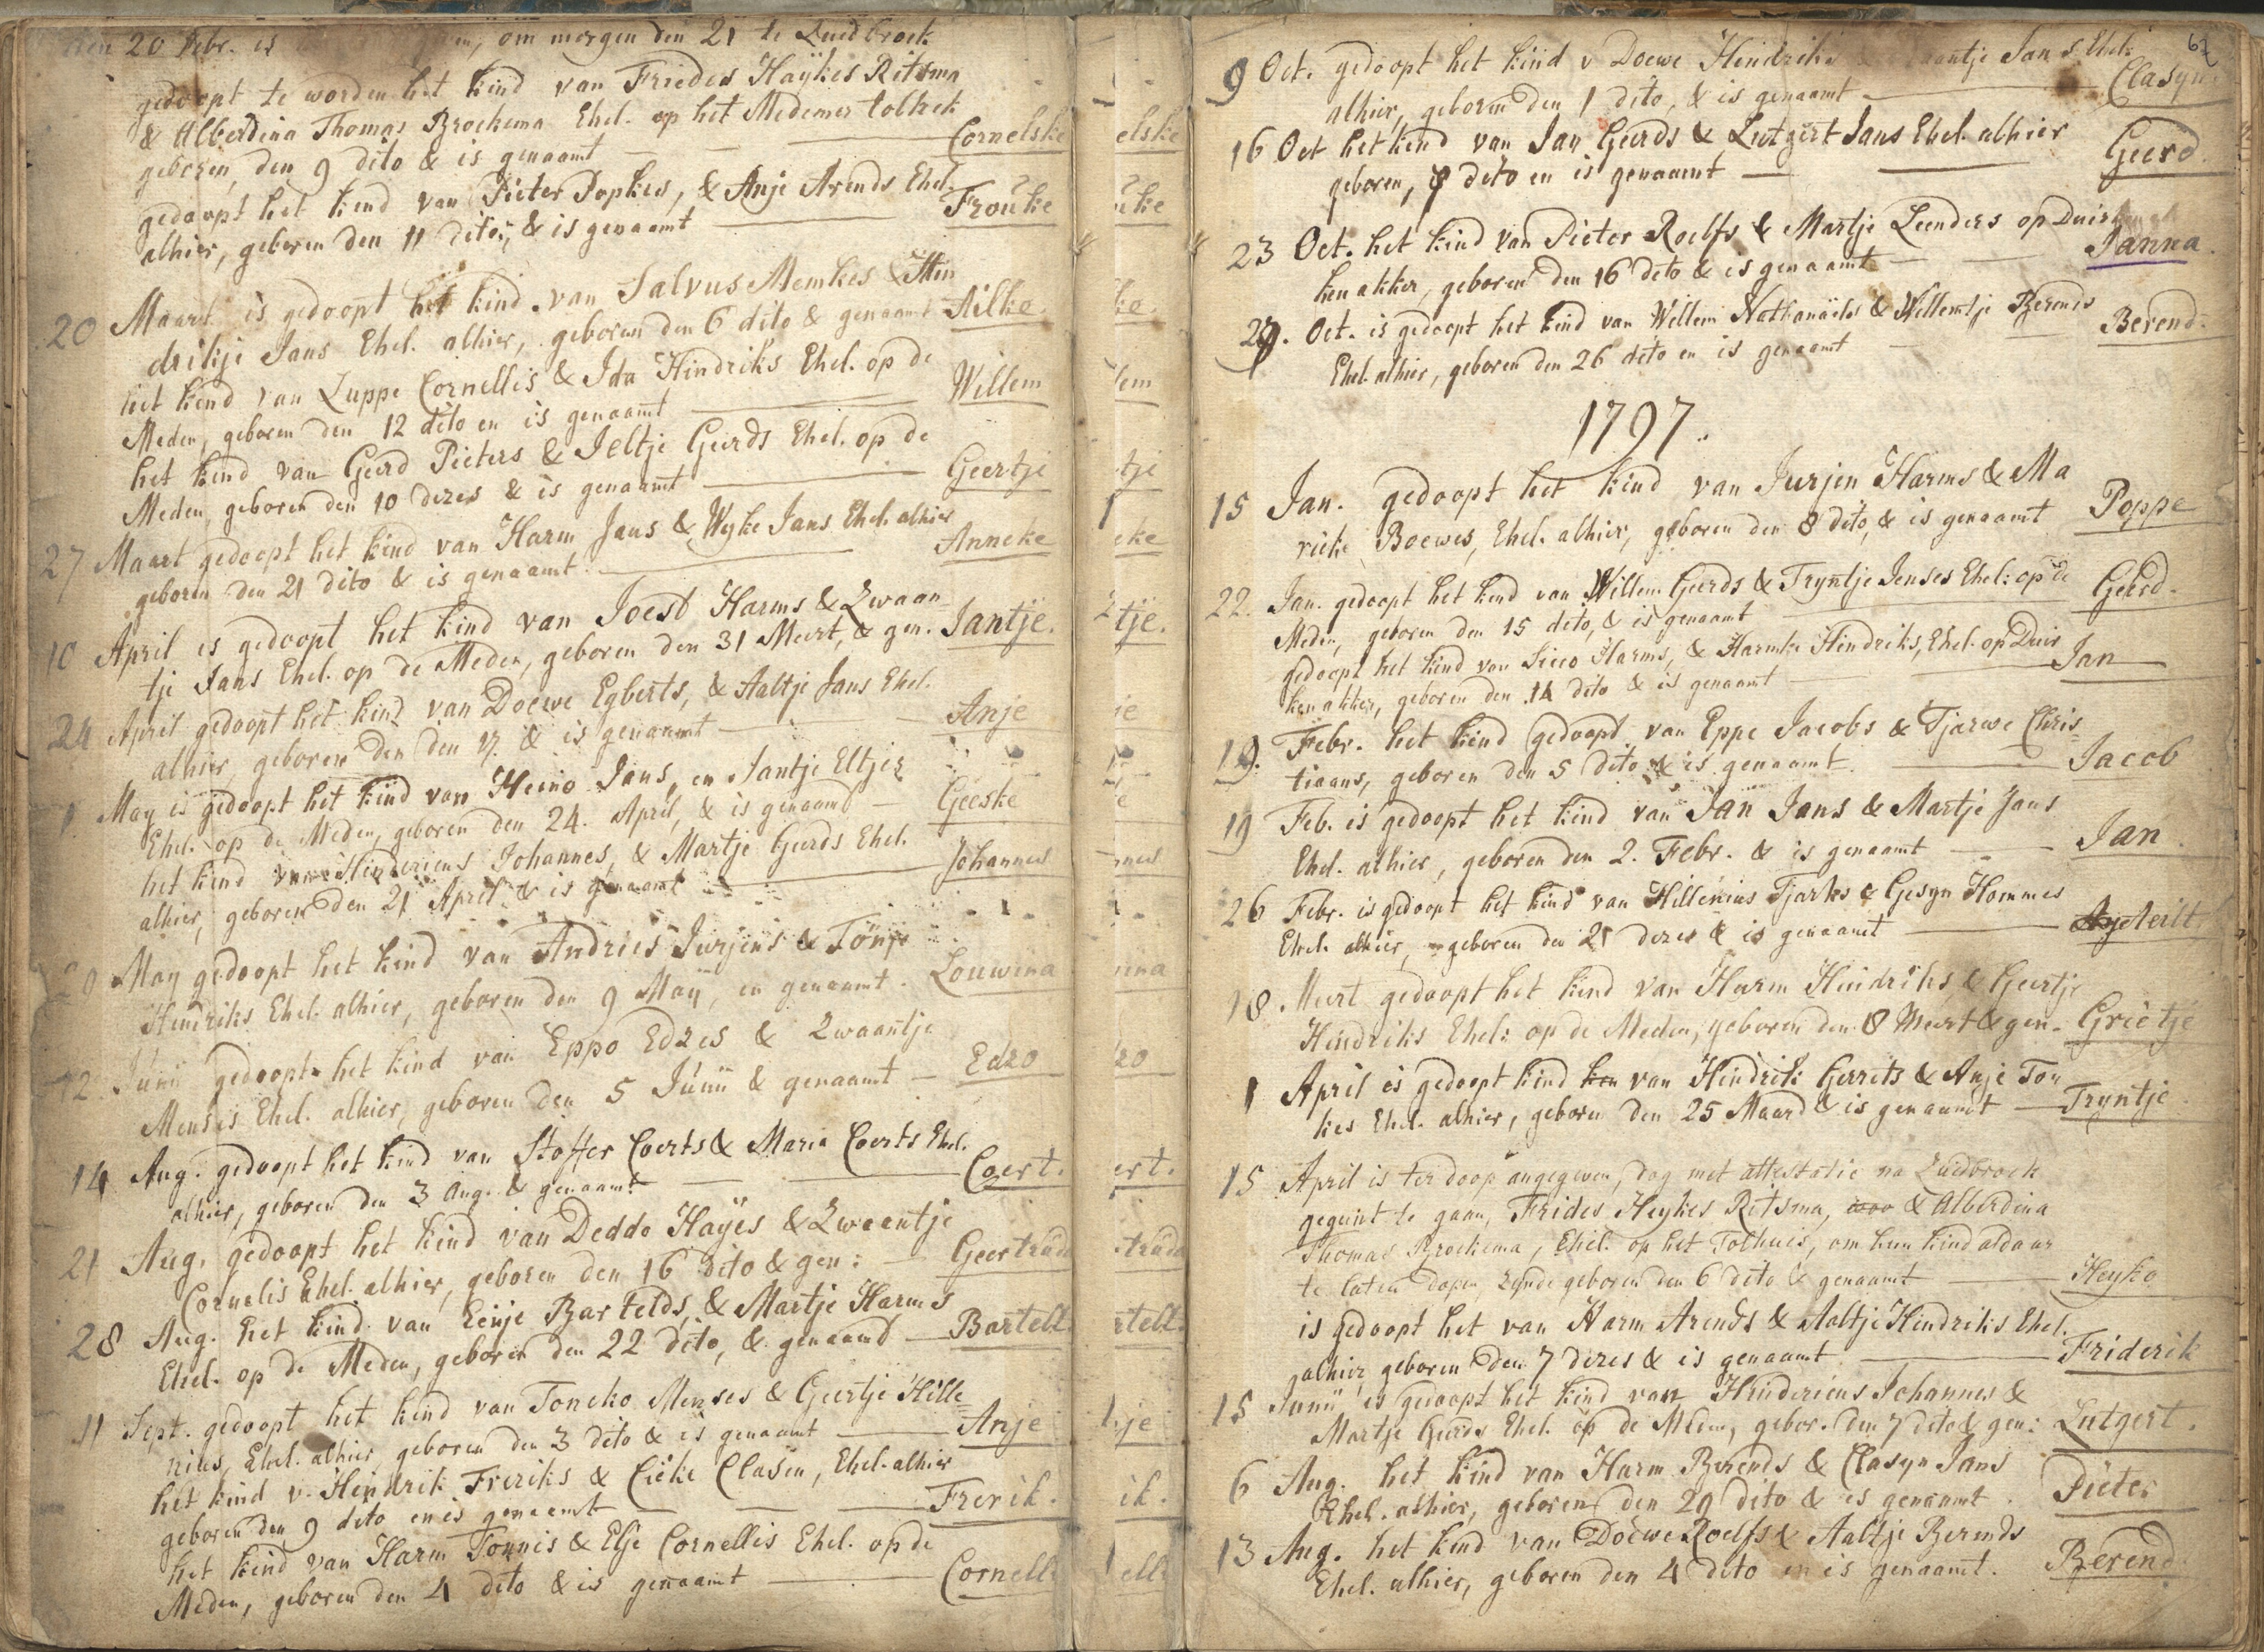 den 20 Febr. is om morgen den 21 te Zuidbroek
gedoopt te worden het kind van Friedes Haÿkes Ritsma
& Alberdina Thomas Broekema Ehel. op het Medemer tolhek
geboren, den 9 dito & is genaamt — Cornelske
gedoopt het kind van Pieter Popkes, & Anje Arends Ehel.
alhier, geboren den 11 dito, & is genaamt — Frouke
20 Maart is gedoopt het kind van Salvus Memkes & Hin
drikje Jans Ehel. alhier, geboren den 6 dito & genaamt Ailke.
het kind van Luppe Cornellis & Ida Hindriks Ehel. op de
Meden, geboren den 12 dito en is genaamt — Willem
het kind van Geerd Pieters & Jeltje Geerds Ehel. op de
Meden, geboren den 10 dezes & is genaamt — Geertje
27 Maart gedoopt het kind van Harm Jans & Wyke Jans Ehel. alhier
geboren den 21 dito & is genaamt — Anneke
10 April is gedoopt het kind van Joest Harms & Zwaan
tje Jans Ehel. op de Meden, geboren den 31 Meert, & gen. Jantje.
24 April gedoopt het kind van Doewe Egberts, & Aaltje Jans Ehel.
alhier, geboren den den 17. & is genaamt — Anje
1. May is gedoopt het kind van Heino Jans, en Jantje Eltjes
Ehel. op de Meden, geboren den 24. April, & is genaamt — Geeske
het kind van Hinderiens Johannes, & Martje Geerds Ehel.
alhier, geboren den 21 April & is genaamt — Johannes
May gedoopt het kind van Andries Jurjens & Tönje
Hendriks Ehel. alhier, geboren den 9 Maÿ, en genaamt. Louwina
12. Junii gedoopt het kind van Eppo Edzes & Zwaantje
Menses Ehel. alhier, geboren den 5 Junii & genaamt — Edzo
14 Aug. gedoopt het kind van Stoffer Coerts & Maria Coerts Ehel.
alhier, geboren den 3 Aug. & genaamt — Coert.
21 Aug. gedoopt het kind van Deddo Haÿes & Zwaantje
Cornelis Ehel. alhier, geboren den 16 dito & gen: — Geertrud
28 Aug. het kind van Eenje Bartelds, & Martje Harms
Ehel. op de Meden, geboren den 22 dito, & genaamd — Bartelt.
11 Sept. gedoopt het kind van Toncko Menses & Geertje Hille
nius, Ehel. alhier, geboren den 3 dito & is genaamt — Anje
het kind v. Hendrik Freriks & Eieke Clasen, Ehel. alhier
geboren den 9 dito en is genaemt — Frerik.
het kind van Harm Tonnis & Elje Cornellis Ehel. op de
Meden, geboren den 4 dito & is genaamt — Cornell
elske
uke
ke.
lem
tje
eke
tje.
je
nnes
nina
zo
ert.
trud
rtelt.
je
ik.
ell
67
9 Oct. gedoopt het kind v Doewe Hendriks Jans Ehel:
alhier, geboren den 1 dito, & is genaamt — Clasyn
16 Oct het kind van Jan Geerds & Lutgert Jans Ehel. alhier
geboren, 7 dito en is genaamt — Geerd.
23 Oct. het kind van Pieter Roelfs & Martje Leenders op Duir
ken akker, geboren den 16 dito & is genaamt — Janna.
29. Oct. is gedoopt het kind van Willem Nathanäels & Willemtje Berends
Ehel. alhier, geboren den 26 dito en is genaamt — Berend.
1797.
15 Jan. gedoopt het kind van Jurjen Harms & Ma
rieke Boewes, Ehel. alhier, geboren den 8 dito, & is genaamt Poppe
22. Jan. gedoopt het kind van Willem Geerds & Tryntje Jenses Ehel: op de
Meden, geboren den 15 dito, & is genaamt — Geerd.
gedoopt het kind van Sicco Harms, & Harmke Hindriks, Ehel. op Duir
ken akker, geboren den 14 dito & is genaamt — Jan
19. Febr. het kind gedoopt van Eppe Jacobs & Tjarwe Chris
tiaans, geboren den 5 dito & is genaamt. — Jacob
19 Feb. is gedoopt het kind van Jan Jans & Martje Jans
Ehel. alhier, geboren den 2. Febr. & is genaamt — Jan
26 Febr. is gedoopt het kind van Hillenius Tjarks & Gesyn Hommes
Ehel. alhier, geboren den 21 dezes & is genaamt — Aeilt.
18. Meert gedoopt het kind van Harm Hindriks, & Geertje
Hindriks Ehel: op de Meden, geboren den 8 Meert & gen. Grietje
1 April is gedoopt kind van Hindrik Gerrits & Anje Ton
kes Ehel. alhier, geboren den 25 Maard & is genaamt — Tryntje
15 April is ter doop angegewen, dog met attestatie na Zuidbroek
gegunt te gaan, Frides Heykes Ritsma, & Alberdina
Thomas Broekema, Ehel. op het Tolhuis, om hun kind aldaar
te laten dopen, zynde geboren den 6 dito & genaamt — Heyko
is gedoopt het van Harm Arends & Aaltje Hindriks Ehel.
alhier geboren den 7 dezes & is genaamt — Friderik
15 Junii is gedoopt het kind van Hinderiens Johannes &
Martje Geerds Ehel. op de Meden, gebor. den 7 dito & gen: Lutgert.
6 Aug. het kind van Harm Berends & Clasyn Jans
Ehel. alhier, geboren den 29 dito & is genaamt. Pieter
13 Aug. het kind van Doewe Roelfs & Aaltje Berends
Ehel. alhier, geboren den 4 dito en is genaamt. Berend